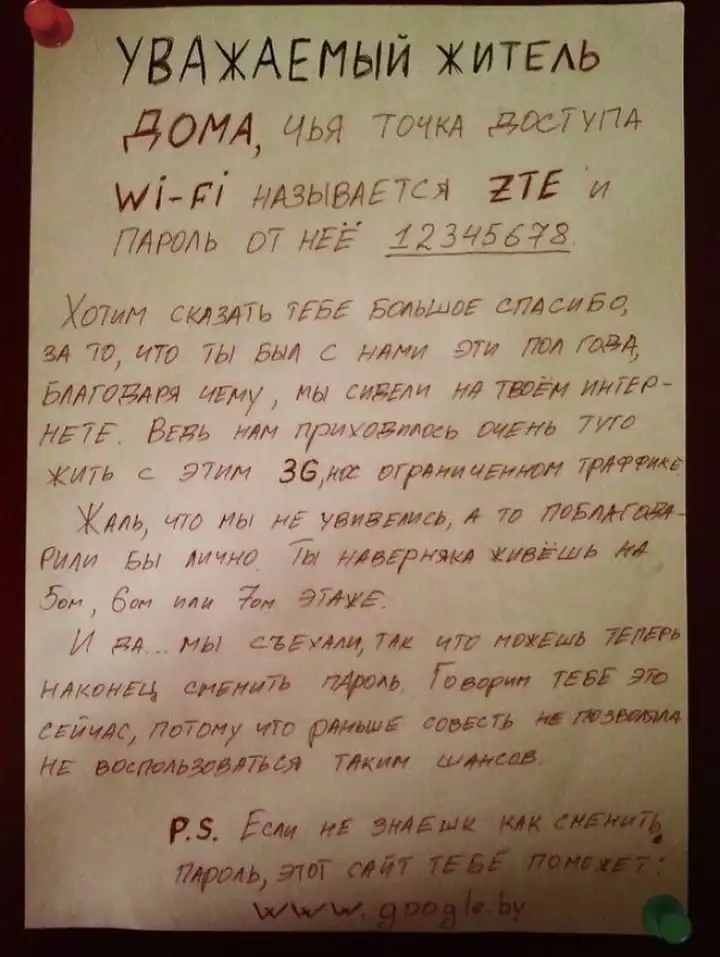 УВАЖАЕМЫЙ ЖИТЕЛЬ
ДОМА, ЧЬЯ ТОЧКА ДОСТУПА
Wi-Fi НАЗЫВАЕТСЯ ZTE И
ПАРОЛЬ ОТ НЕЁ 12345678.
ХОТИМ СКАЗАТЬ ТЕБЕ БОЛЬШОЕ СПАСИБО,
ЗА ТО, ЧТО ТЫ БЫЛ С НАМИ ЭТИ ПОЛ ГОДА,
БЛАГОДАРЯ ЧЕМУ, МЫ СИДЕЛИ НА ТВОЁМ ИНТЕР-
НЕТЕ. ВЕДЬ НАМ ПРИХОДИЛОСЬ ОЧЕНЬ ТУГО
ЖИТЬ С ЭТИМ 3G, ОГРАНИЧЕННОМ ТРАФФИКЕ
ЖАЛЬ, ЧТО МЫ НЕ УВИДЕЛИСЬ, А ТО ПОБЛАГОДА-
РИЛИ БЫ ЛИЧНО. ТЫ НАВЕРНЯКА ЖИВЁШЬ НА
5ом, 6ом ИЛИ 7ом ЭТАЖЕ.
И ДА... МЫ СЪЕХАЛИ, ТАК ЧТО МОЖЕШЬ ТЕПЕРЬ
НАКОНЕЦ СМЕНИТЬ ПАРОЛЬ. ГОВОРИМ ТЕБЕ ЭТО
СЕЙЧАС, ПОТОМУ ЧТО РАНЬШЕ СОВЕСТЬ НЕ ПОЗВОЛЯЛА
НЕ ВОСПОЛЬЗОВАТЬСЯ ТАКИМ ШАНСОВ.
P.S. ЕСЛИ НЕ ЗНАЕШК КАК СМЕНИТЬ
ПАРОЛЬ, ЭТОТ САЙТ ТЕБЕ ПОМОЖЕТ:
www.google.by